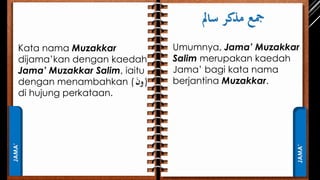 Kata nama Muzakkar
dijama'kan dengan kaedah
Jama' Muzakkar Salim, iaitu
dengan menambahkan (ون)
di hujung perkataan.
جمع مذكر سالم
Umumnya, Jama' Muzakkar
Salim merupakan kaedah
Jama' bagi kata nama
berjantina Muzakkar.
JAMA'
JAMA'